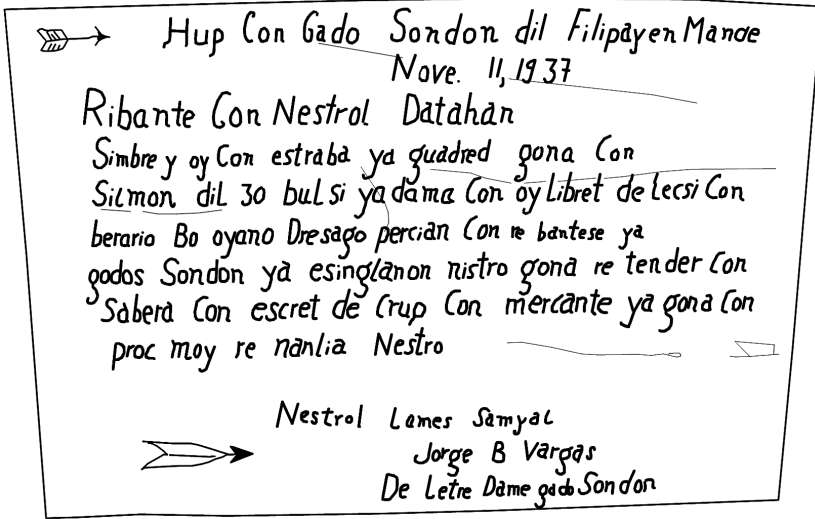 Hup Con Gado Sondon dil Filipayen Mande
Nove. 11, 1937
Ribante Con Nestrol Datahan
Simbre y oy Con estraba ya guadred gona Con
Silmon dil 30 bulsi ya dama Con oy Libret de Lecsi Con
berario Bo oyano Dresago percian Con re bantese ya
godos Sondon ya esinglanon nistro gona re tender Con
Sabera Con escret de Crup Con mercante ya gona Con
proc moy re nanlia Nestro
Nestrol Lames Samyal
Jorge B Vargas
De Letre Dame gado Sondon